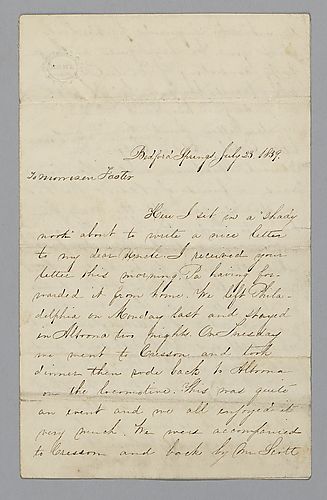 Bedford Springs, July 23 1859.
To Morrison Foster
Here I sit in a "shady
nook" about to write a nice letter
to my dear Uncle. I received your
letter this morning, Pa having for-
warded it from home. We left Phila-
delphia on Monday last and stayed
in Altoona two nights. On Tuesday
we went to Cresson and took
dinner then rode back to Altoona
on the locomotive. This was quite
an event and we all enjoyed it
very much. We were accompanied
to Cresson and back by Mr Scott